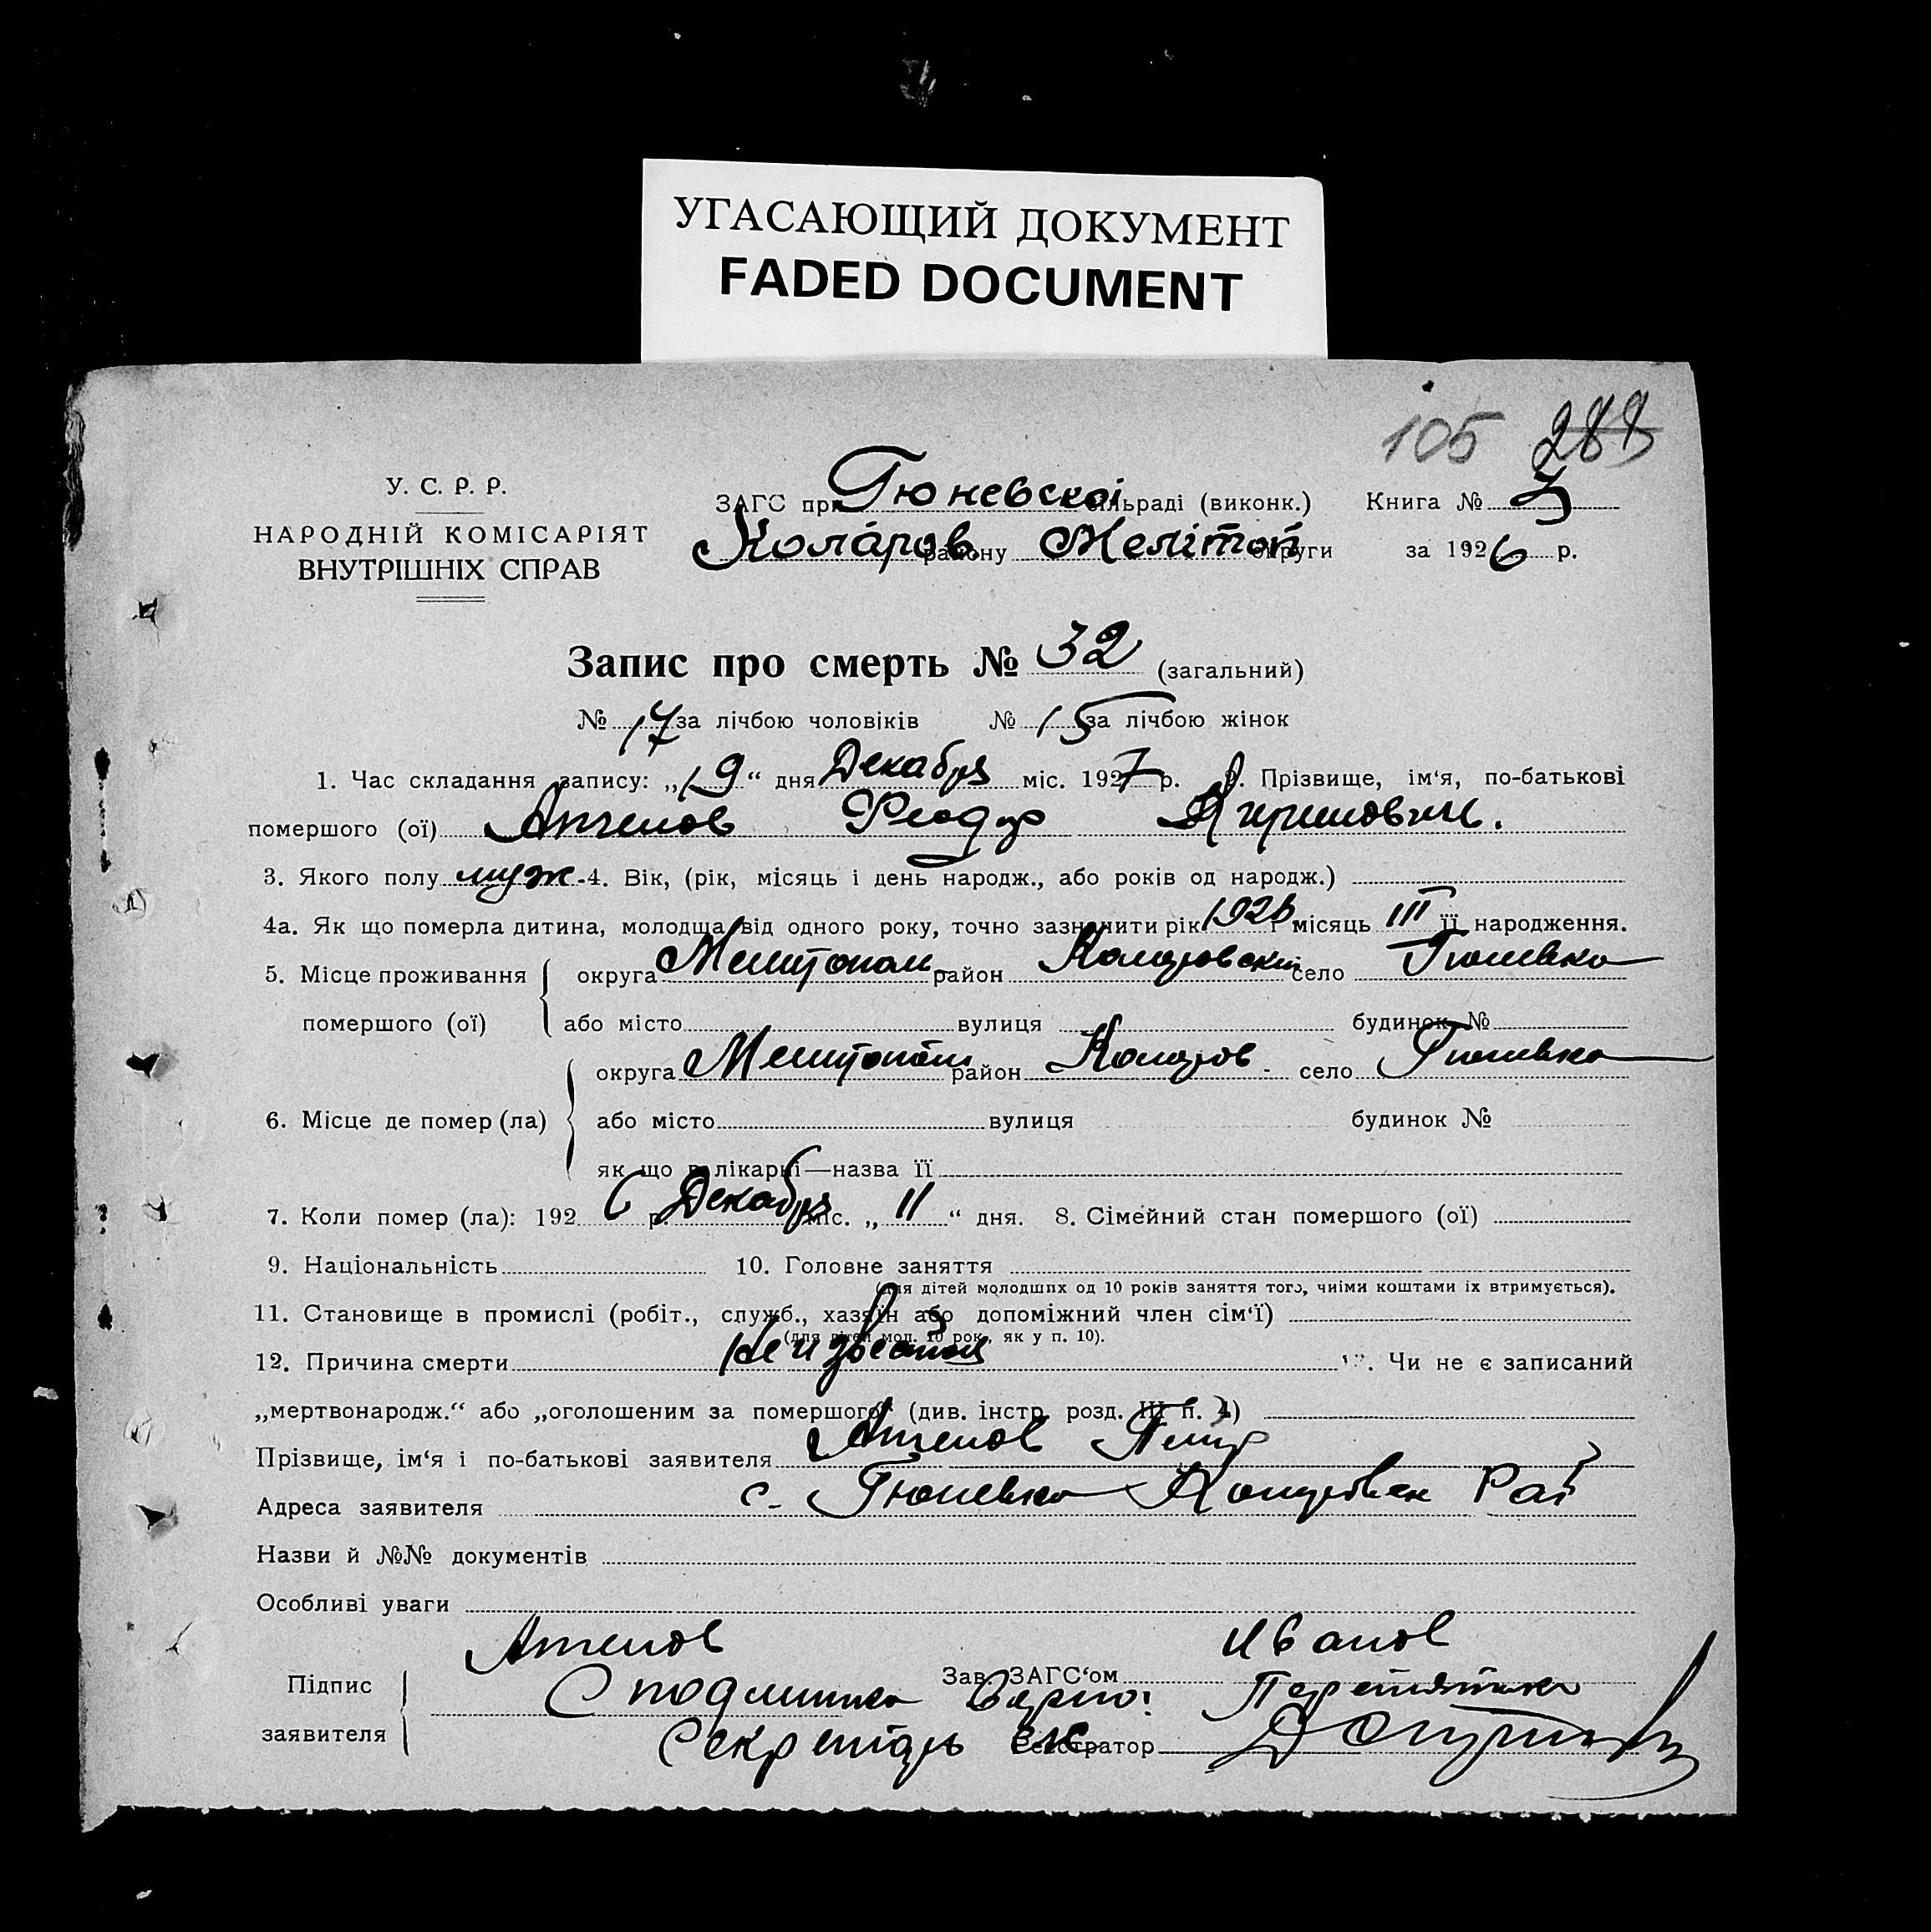 УГАСАЮЩИЙ ДОКУМЕНТ
FADED DOCUMENT
105 288
У. С. Р. Р.
НАРОДНІЙ КОМІСАРІЯТ
ВНУТРІШНІХ СПРАВ
ЗАГС при Гюневскоі сільраді (виконк.) Книга № 3
Коларов району Мелітоп округи за 1926 р.
Запис про смерть № 32 (загальний)
№ 17 за лічбою чоловіків № 15 за лічбою жінок
1. Час складання запису: „19“ дня Декабря міс. 1927 р. 2. Прізвище, ім‘я, по-батькові
помершого (ої) Ангелов Феодор
3. Якого полу муж. 4. Вік, (рік, місяць і день народж., або років од народж.)
4а. Як що померла дитина, молодща від одного року, точно зазначити рік 1926 і місяць III її народження.
5. Місце проживання округа Мелитополь район Коларовский село Гюневка
помершого (ої) або місто вулиця будинок №
округа Мелитополь район Коларов. село Гюневка
6. Місце де помер (ла) або місто вулиця будинок №
як що в лікарні—назва її
7. Коли помер (ла): 1926 р. Декабря міс. „11“ дня. 8. Сімейний стан помершого (ої)
9. Національність 10. Головне заняття
(для дітей молодших од 10 років заняття того, чиїми коштами їх втримується).
11. Становище в промислі (робіт., служб., хазяїн або допоміжний член сім‘ї)
(для дітей мол. 10 рок., як у п. 10).
12. Причина смерти Неизвестна 13. Чи не є записаний
„мертвонародж.“ або „оголошеним за помершого“ (див. інстр. розд. III п. 4)
Прізвище, ім‘я і по-батькові заявителя Ангелов Петр
Адреса заявителя с. Гюневка Коларовск Рай
Назви й №№ документів
Особливі уваги
Ангелов Иванов
Підпис Зав. ЗАГС‘ом
С подлинным верно: Перетятько
заявителя Секретарь Реєстратор